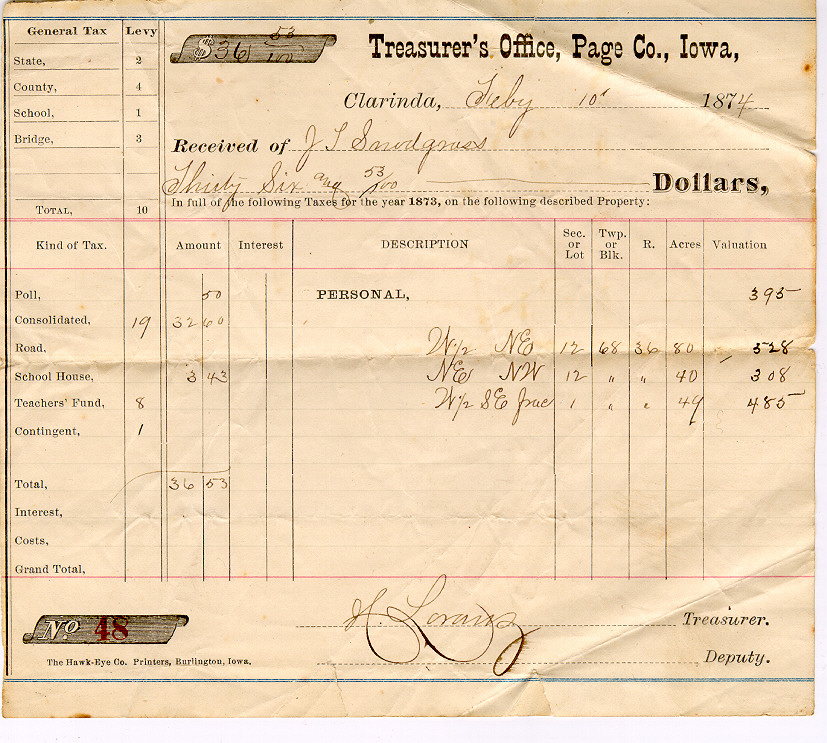 General Tax Levy
State, 2
County, 4
School, 1
Bridge, 3
TOTAL, 10
$36 53/100
Treasurer's Office, Page Co., Iowa,
Clarinda, Feby 10th 1874
Received of J S Snodgrass
Thirty Six and 53/100 Dollars,
In full of the following Taxes for the year 1873, on the following described Property:
Kind of Tax. Amount Interest DESCRIPTION Sec. or Lot Twp. or Blk. R. Acres Valuation
Poll, 50 PERSONAL, 395
Consolidated, 19 32 60
Road, W/2 NE 12 68 36 80 528
School House, 3 43 NE NW 12 " " 40 308
Teachers' Fund, 8 W/2 SE frac 1 " " 49 485
Contingent, 1
Total, 36 53
Interest,
Costs,
Grand Total,
No 48
H. Loranz Treasurer.
Deputy.
The Hawk-Eye Co. Printers, Burlington, Iowa.